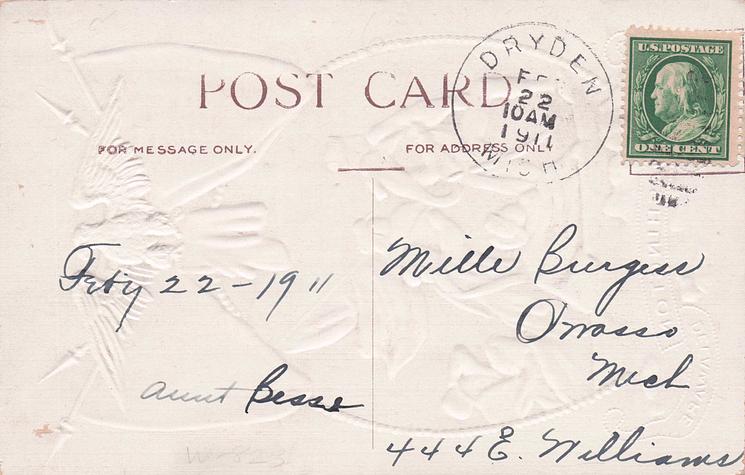 POST CARD
FOR MESSAGE ONLY.
FOR ADDRESS ONLY
DRYDEN
FEB
22
10AM
1911
MICH
U.S. POSTAGE
ONE CENT
Feby 22-1911
Aunt Besse
Mille Burgess
Owosso
Mich
444 E. Williams
W-823